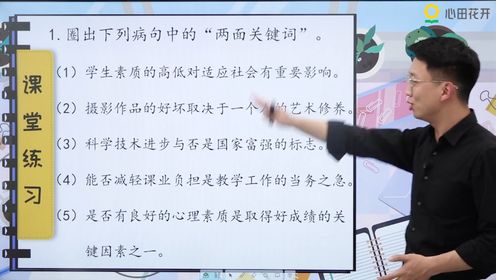 心田花开
1. 圈出下列病句中的“两面关键词”。
课堂练习
（1）学生素质的高低对适应社会有重要影响。
（2）摄影作品的好坏取决于一个 的艺术修养。
（3）科学技术进步与否是国家富强的标志。
（4）能否减轻课业负担是教学工作的当务之急。
（5）是否有良好的心理素质是取得好成绩的关
键因素之一。